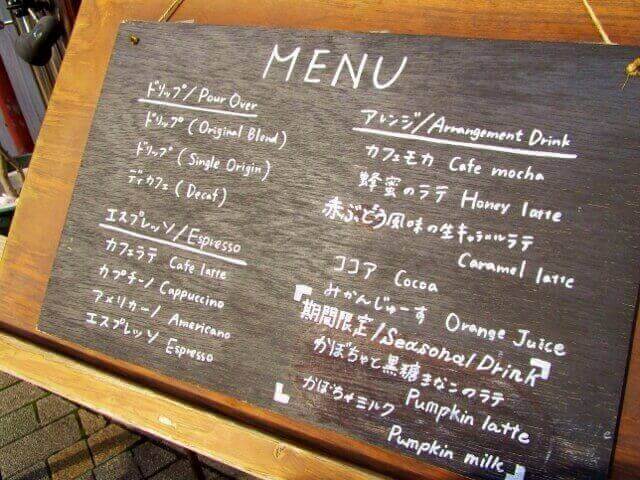 MENU
ドリップ/Pour Over
ドリップ (Original Blend)
ドリップ (Single Origin)
ディカフェ (Decaf)
エスプレッソ/Espresso
カフェラテ Cafe latte
カプチーノ Cappuccino
アメリカーノ Americano
エスプレッソ Espresso
アレンジ/Arrangement Drink
カフェモカ Cafe mocha
蜂蜜のラテ Honey latte
赤ぶどう風味の生キャラメルラテ
Caramel latte
ココア Cocoa
みかんじゅーす Orange Juice
期間限定/Seasonal Drink
かぼちゃと黒糖きなこのラテ
Pumpkin latte
かぼちゃミルク
Pumpkin milk